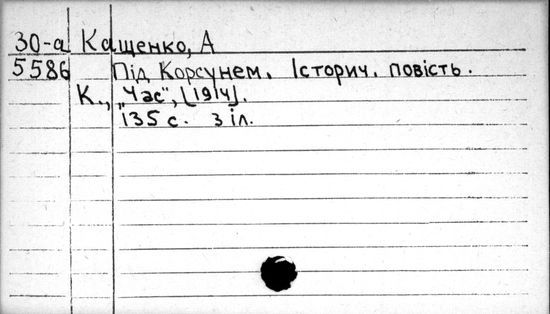 30-а Кащенко, А
5586 Під Корсунем. Історич. повість.
К., „Час", [1914].
135 с. з іл.